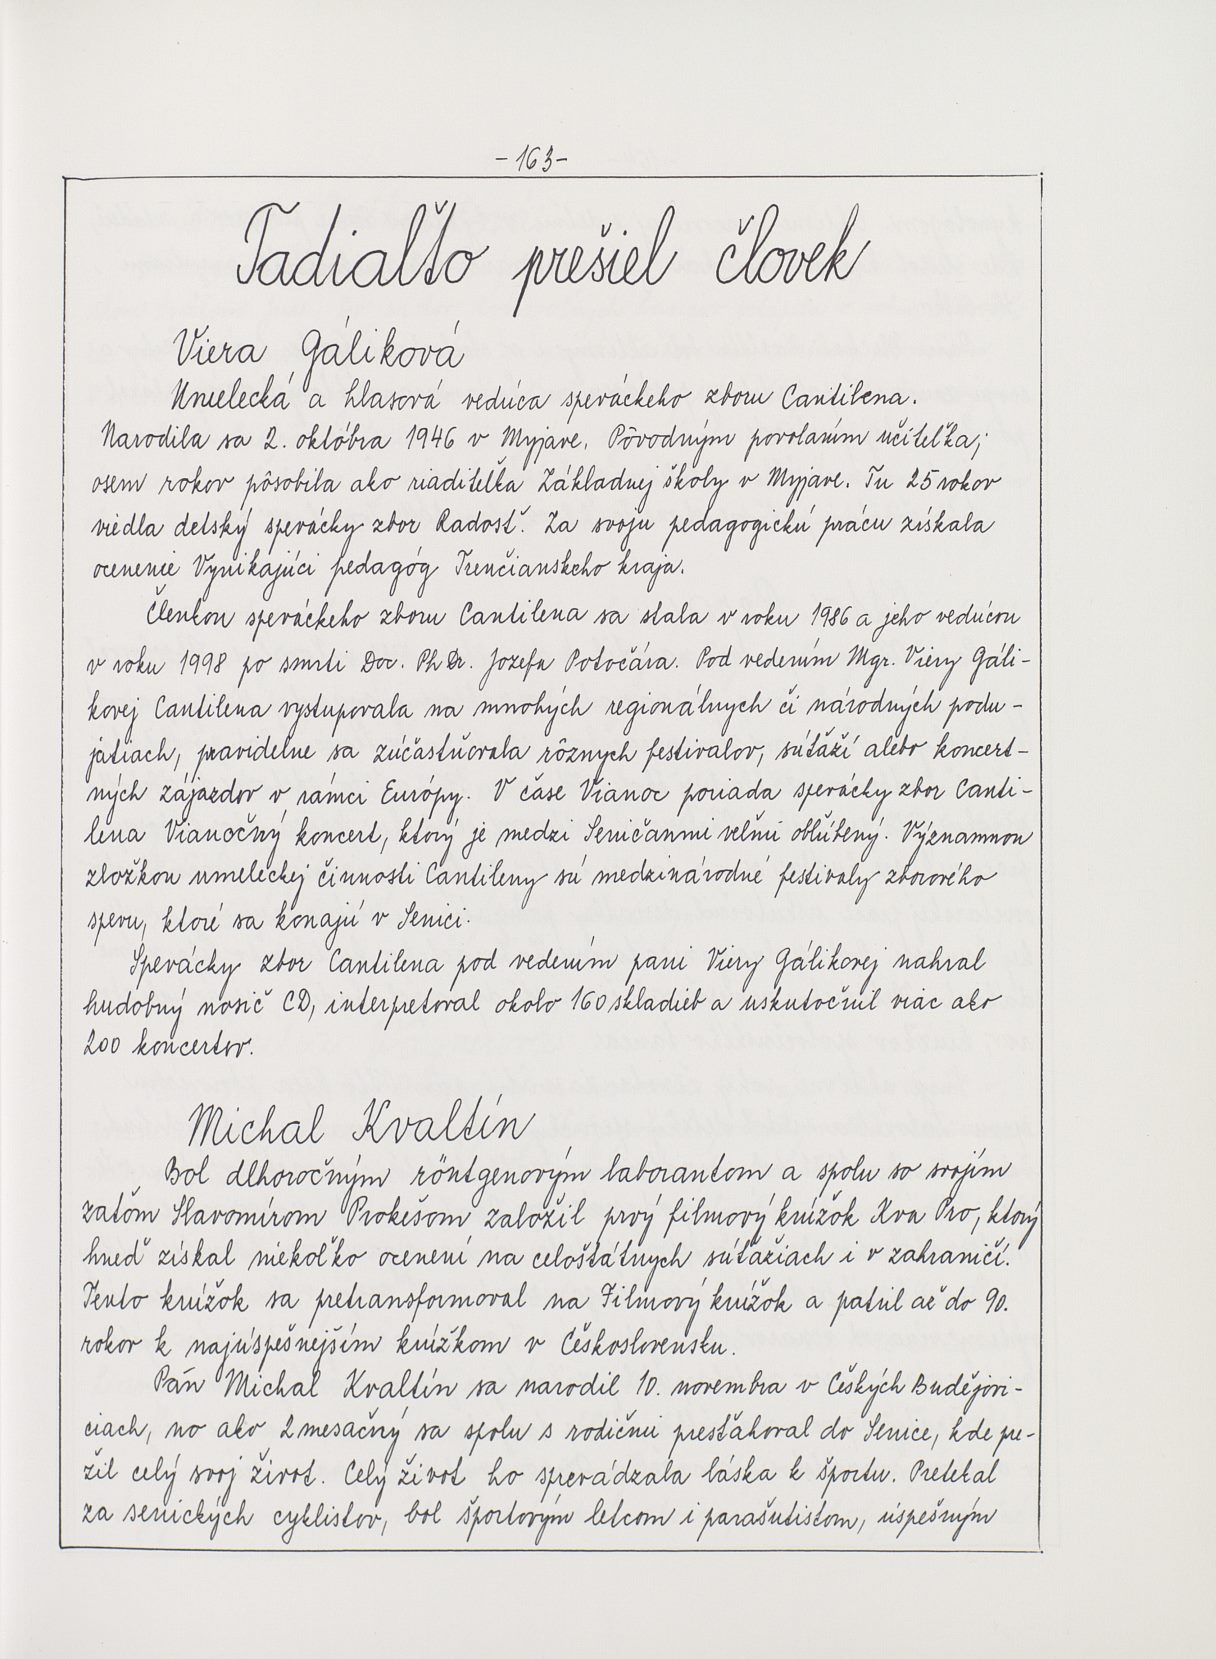 -163-
Tadiaľto prešiel človek
Viera Gáliková
Umelecká a hlasová vedúca speváckeho zboru Cantilena.
Narodila sa 2. októbra 1946 v Myjave. Pôvodným povolaním učiteľka;
osem rokov pôsobila ako riaditeľka Základnej školy v Myjave. Tu 25 rokov
viedla detský spevácky zbor Radosť. Za svoju pedagogickú prácu získala
ocenenie Vynikajúci pedagóg Trenčianskeho kraja.
Členkou speváckeho zboru Cantilena sa stala v roku 1986 a jeho vedúcou
v roku 1998 po smrti Doc. PhDr. Jozefa Potočára. Pod vedením Mgr. Viery Gáli-
kovej Cantilena vystupovala na mnohých regionálnych či národných podu-
jatiach, pravidelne sa zúčastňovala rôznych festivalov, súťaží alebo koncert-
ných zájazdov v rámci Európy. V čase Vianoc poriada spevácky zbor Canti-
lena Vianočný koncert, ktorý je medzi Seničanmi veľmi obľúbený. Významnou
zložkou umeleckej činnosti Cantileny sú medzinárodné festivaly zborového
spevu, ktoré sa konajú v Senici.
Spevácky zbor Cantilena pod vedením pani Viery Gálikovej nahral
hudobný nosič CD, interpretoval okolo 160 skladieb a uskutočnil viac ako
200 koncertov.
Michal Kvaltín
Bol dlhoročným röntgenovým laborantom a spolu so svojím
zaťom Slavomírom Prokešom založil prvý filmový krúžok Kva Pro, ktorý
hneď získal niekoľko ocenení na celoštátnych súťažiach i v zahraničí.
Tento krúžok sa pretransformoval na Filmový krúžok a patril až do 90.
rokov k najúspešnejším krúžkom v Československu.
Pán Michal Kvaltín sa narodil 10. novembra v Českých Budějovi-
ciach, no ako 2 mesačný sa spolu s rodičmi presťahoval do Senice, kde pre-
žil celý svoj život. Celý život ho sprevádzala láska k športu. Pretekal
za senických cyklistov, bol športovým letcom i parašutistom, úspešným